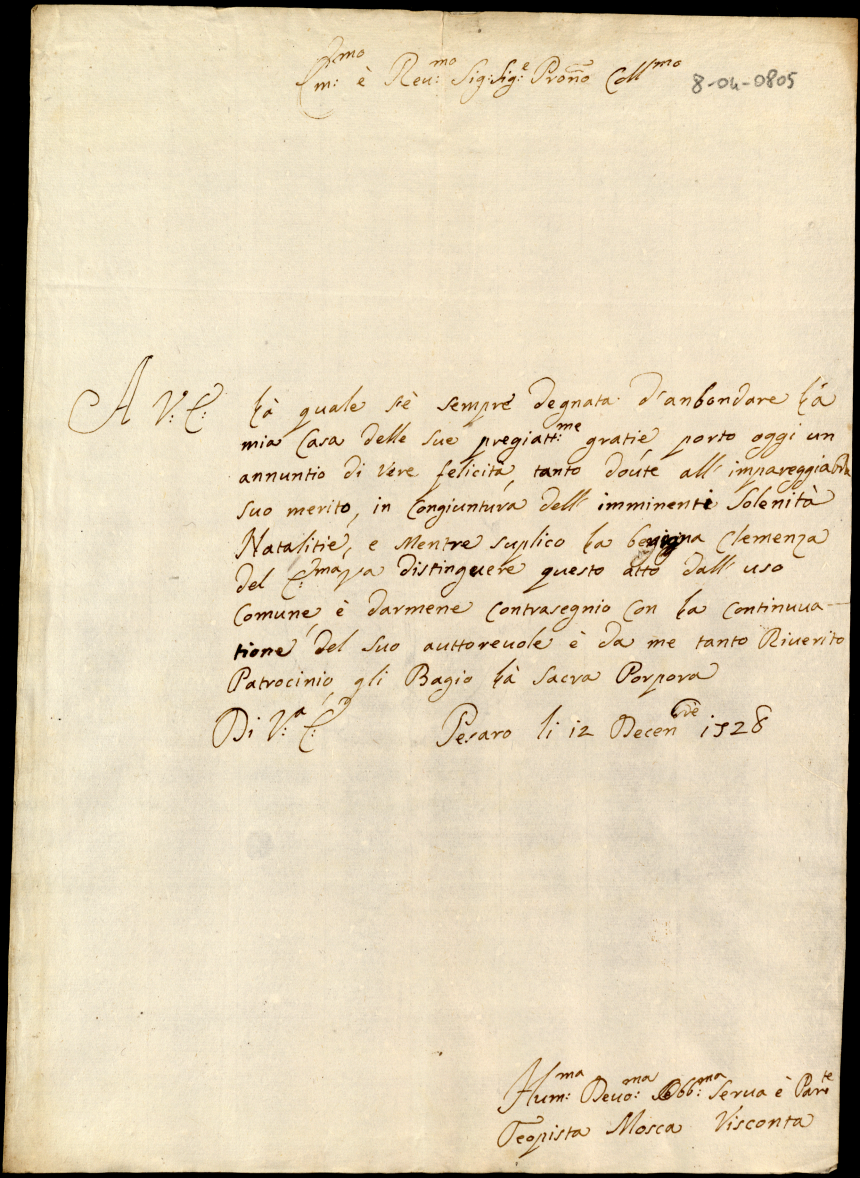 Em:mo è Reu:mo Sig: Sig:e Proño Coll:mo
8-04-0805
A V: E: Là quale s'è sempre degnata d'anbondare Là
mia Casa delle sue pregiatt:me gratie porto oggi un
annuntio di vere felicità, tanto doute all' impareggiabile
suo merito, in Congiuntura dell' imminenti Solenità
Natalitie, e Mentre suplico La benigna Clemenza
del distinguere questo atto dall' uso
Comune, è darmene Contrasegnio Con La Continuua-
tione del suo auttoreuole è da me tanto Riuerito
Patrocinio, gli Bagio Là Sacra Porpora
Di V:a E:a Pesaro li 12 Decenbre 1728
Hum:ma Deuo:ma Obb:ma Serua è Par:te
Teopista Mosca Visconta